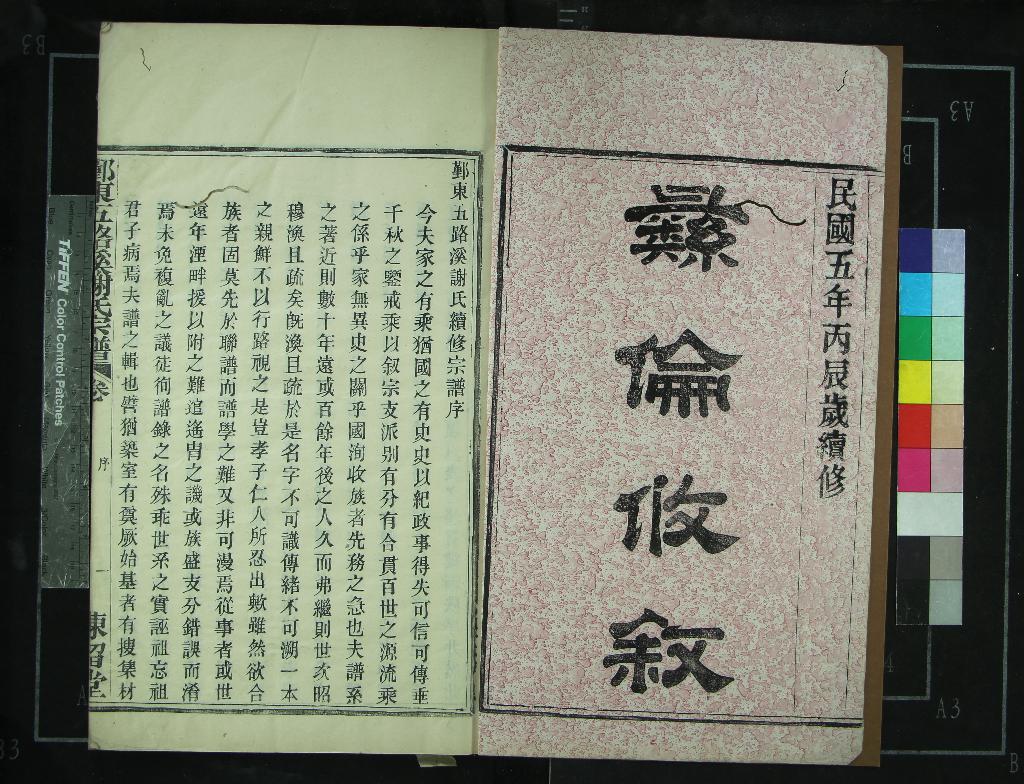 民國五年丙辰歲續修
彝倫攸敘
鄞東五路溪謝氏續修宗譜序
今夫家之有乘猶國之有史史以紀政事得失可信可傳垂
千秋之鑒戒乘以叙宗支派别有分有合貫百世之源流乘
之係乎家無異史之關乎國洵收族者先務之急也夫譜系
之著近則數十年遠或百餘年後之人久而弗繼則世次昭
穆渙且疏矣旣渙且疏於是名字不可識傳緒不可溯一本
之親鮮不以行路視之是豈孝子仁人所忍出歟雖然欲合
族者固莫先於聯譜而譜學之難又非可漫焉從事者或世
遠年湮畔援以附之難逭遙胄之譏或族盛支分錯誤而淆
焉未免複亂之議徒徇譜錄之名殊乖世系之實誣祖忘祖
君子病焉夫譜之輯也譬猶築室有奠厥始基者有搜集材
鄞東五路溪謝氏宗譜
卷
序
一
東留堂
TIFFEN Color Control Patches
A3
B
A3
B
B3
B3